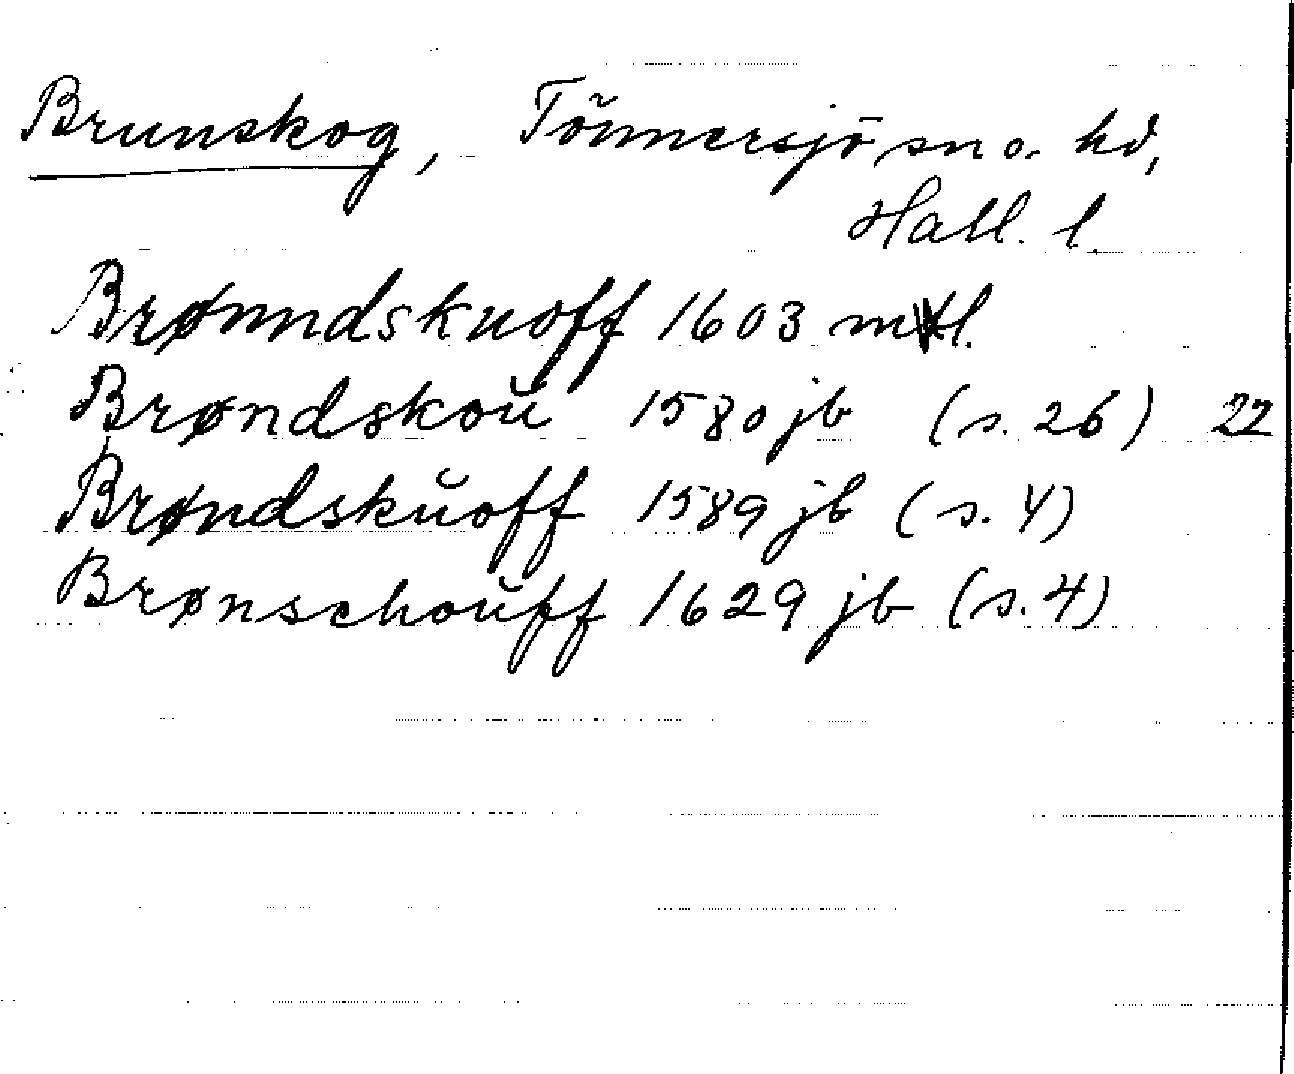 Brunskog, Tönnersjö sn o. hd,
Hall. l.
Brønndskuoff 1603 mtl.
Brøndskoŭ 1580 jb (s. 26) 22
Brøndskŭoff 1589 jb (s. 4)
Brønschoŭff 1629 jb (s. 4)